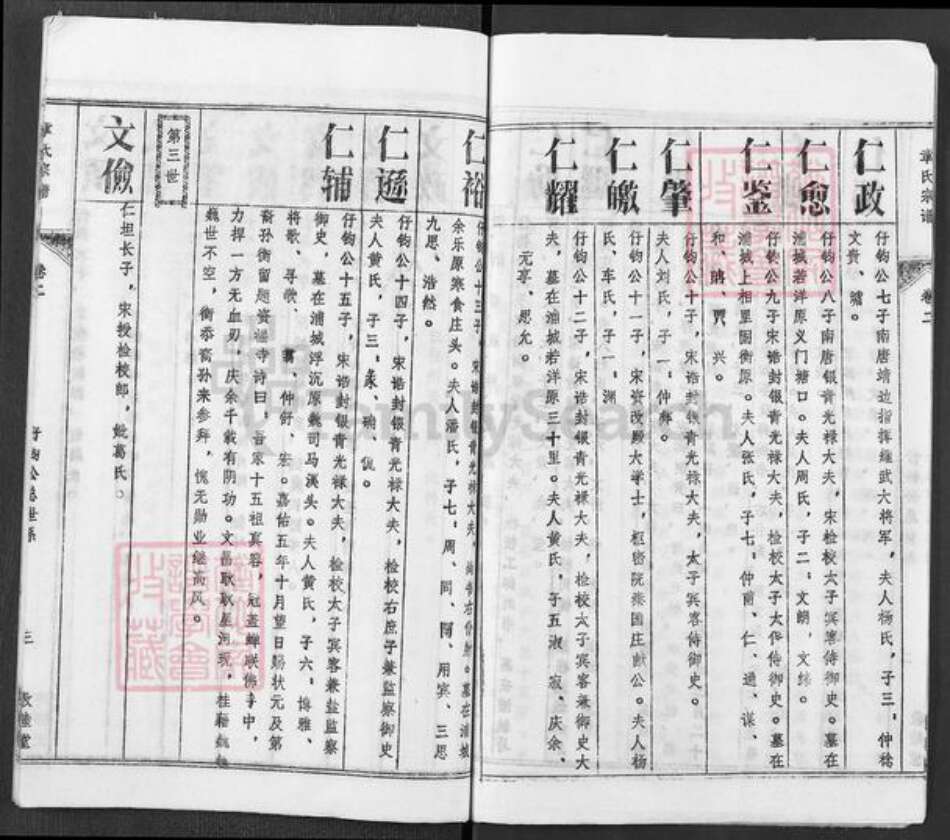 章氏宗谱
卷二
仁政
仔钧公七子南唐靖边指挥继武大将军，夫人杨氏，子三：仲稔
文贵、
仁愈
仔钧公八子南唐银青光禄大夫，宋检校太子宾客侍御史。墓在
浦城若洋原义门塘口。夫人周氏，子二：文朗，文炜。
仁鉴
仔钧公九子宋诰封银青光禄大夫，检校太子太保侍御史。墓在
浦城上相里国衝原。夫人张氏，子七：仲甫、仁、通、谋、
和、兴。
仁肇
仔钧公十子，宋诰封银青光禄大夫，太子宾客侍御史。
夫人刘氏，子一：仲
仁皦
仔钧公十一子，宋资政殿大学士，枢密院柴国庄献公。夫人杨
氏、车氏，子一：渊
仁耀
仔钧公十二子，宋诰封银青光禄大夫，检校太子宾客兼御史大
夫，墓在浦城若洋原三十里。夫人黄氏，子五淑、寂、庆余、
元享、思允。
仁裕
仔钧公十三子，宋诰封银青光禄大夫，墓在浦城
余乐原寒食庄头。夫人潘氏，子七：周、同、用宾、三思
九思、浩然。
仁逊
仔钧公十四子，宋诰封银青光禄大夫，检校右庶子兼监察御史
夫人黄氏，子三：
仁辅
仔钧公十五子，宋诰封银青光禄大夫，检校太子宾客兼盐监察
御史，墓在浦城浮沉原魏司马溪头。夫人黄氏，子六：博雅、
将歌、寻教、仲舒、宏。嘉佑五年十月望日赐状元及第
裔孙衡留题资福寺诗曰，吾家十五祖真容，冠盖蝉联佛寺中，
力捍一方无血刃，庆余千载有阴功。文昌耿耿星洞现，桂籍
巍世不空，衡忝裔孙来参拜，愧无勋业继高风。
第三世
文俭
仁坦长子，宋授检校郎，妣葛氏。
章氏宗谱
卷二
仔钧公总世系
三
敦睦堂
FamilySearch